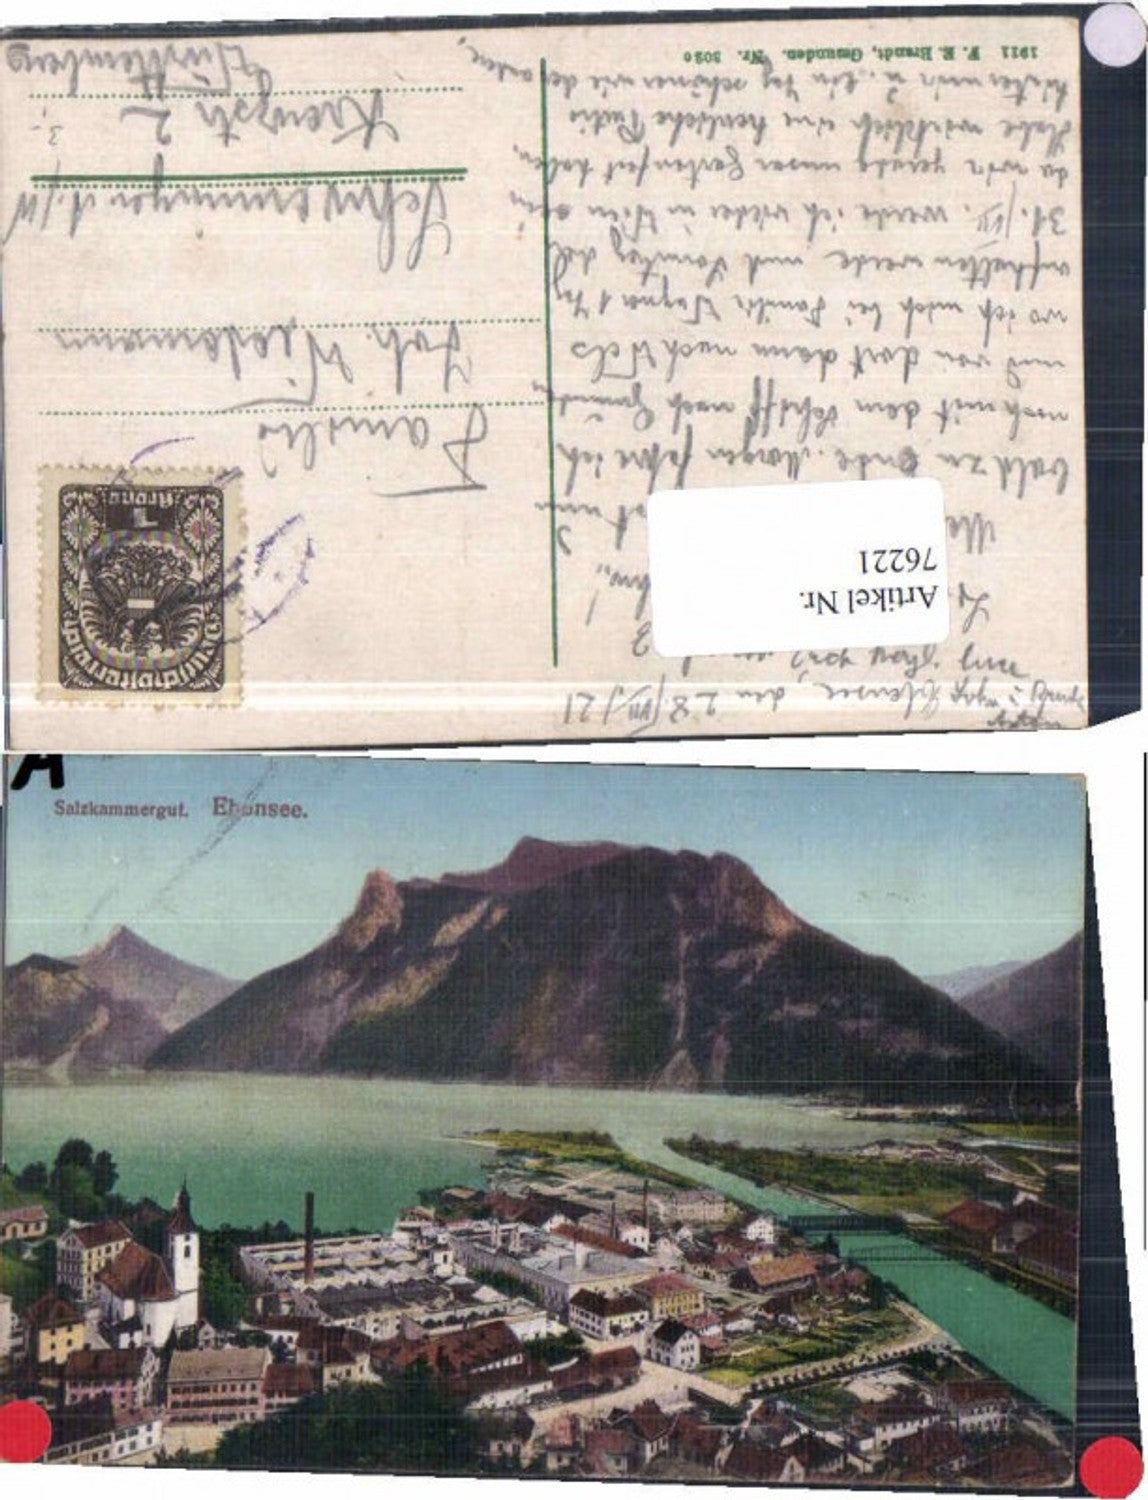 1911 F. E. Brandt, Gmunden. Nr. 3020
Ebensee, den 28/VII/21
Artikel Nr.
76221
bald zu Ende. Morgen fahre ich
noch mit dem Schiff nach Gmunden
und von dort dann nach Wels
wo ich mich bei Familie Wagner 1 Tag
aufhalten werde und Sonntag
31./VII. werde ich wieder in Wien sein
da wir gerade unser Gartenfest haben.
Habe wirklich eine herrliche Partie
hinter mir u. ein Tag schöner wie der andere.
Deutschösterreich
1
Krone
Familie
Joh. Wiedemann
Schwenningen a./N
Kreuzstr 2
Württemberg
3.-
A
Salzkammergut. Ebensee.